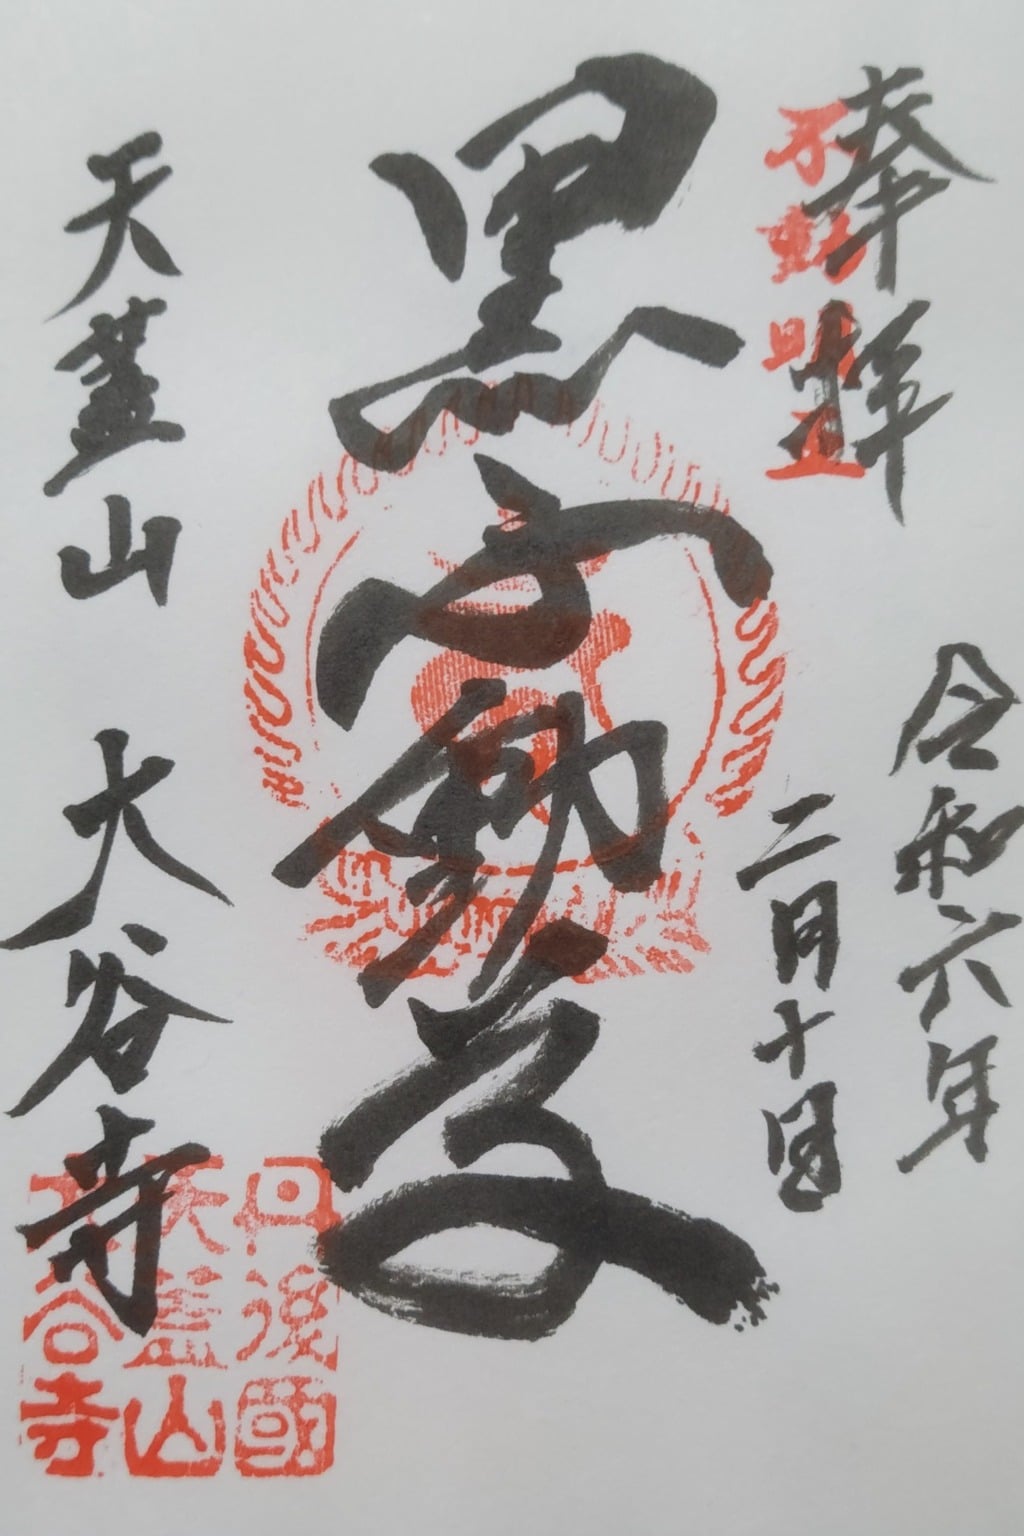 奉拝
不動明王
令和六年
二月十日
黒不動尊
天蓋山 大谷寺
丹後國
天蓋山
大谷寺